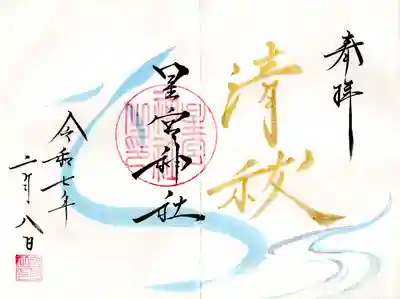 奉拝
清祓
星宮神社
令和七年
二月八日